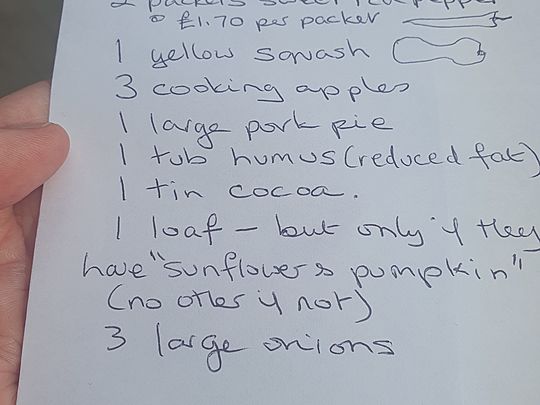 2 packets sweet pepper
@ £1.70 per packet
1 yellow squash
3 cooking apples
1 large pork pie
1 tub humus (reduced fat)
1 tin cocoa.
1 loaf - but only if they
have "sunflower & pumpkin"
(no other if not)
3 large onions